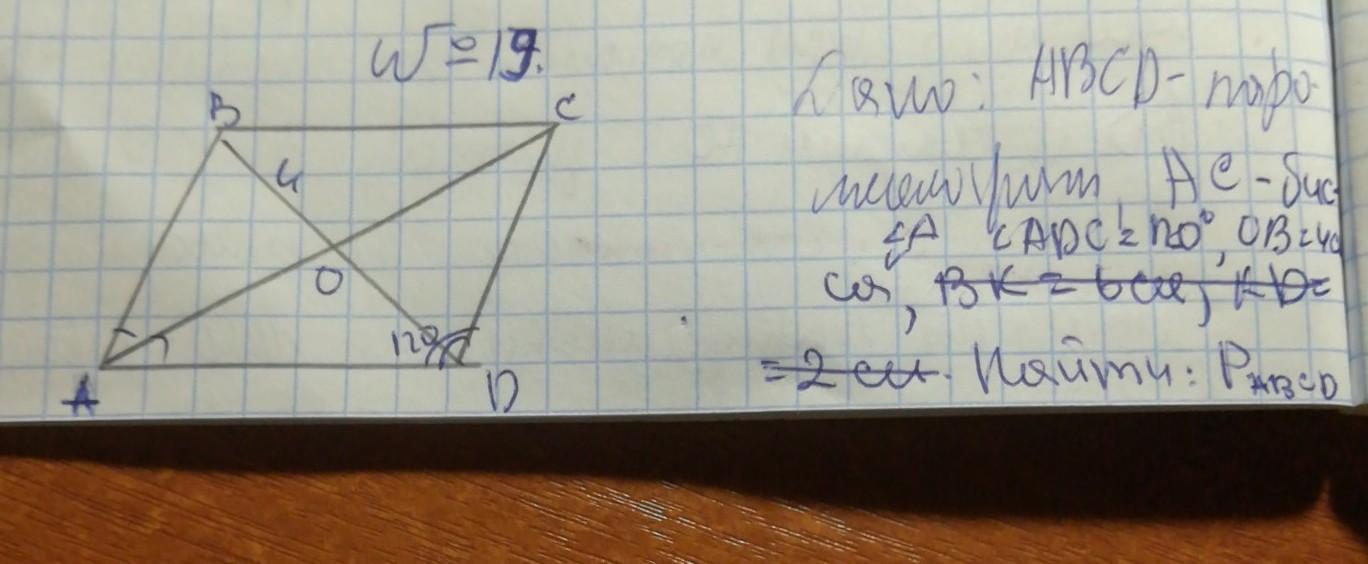 №19.
B C
4
O
120
A D
Дано: ABCD- пара-
ллелограмм, AC-бис-
∠A ∠ADC=120°, OB=4
см, BK=6см, KD=
=2см. Найти: P ABCD